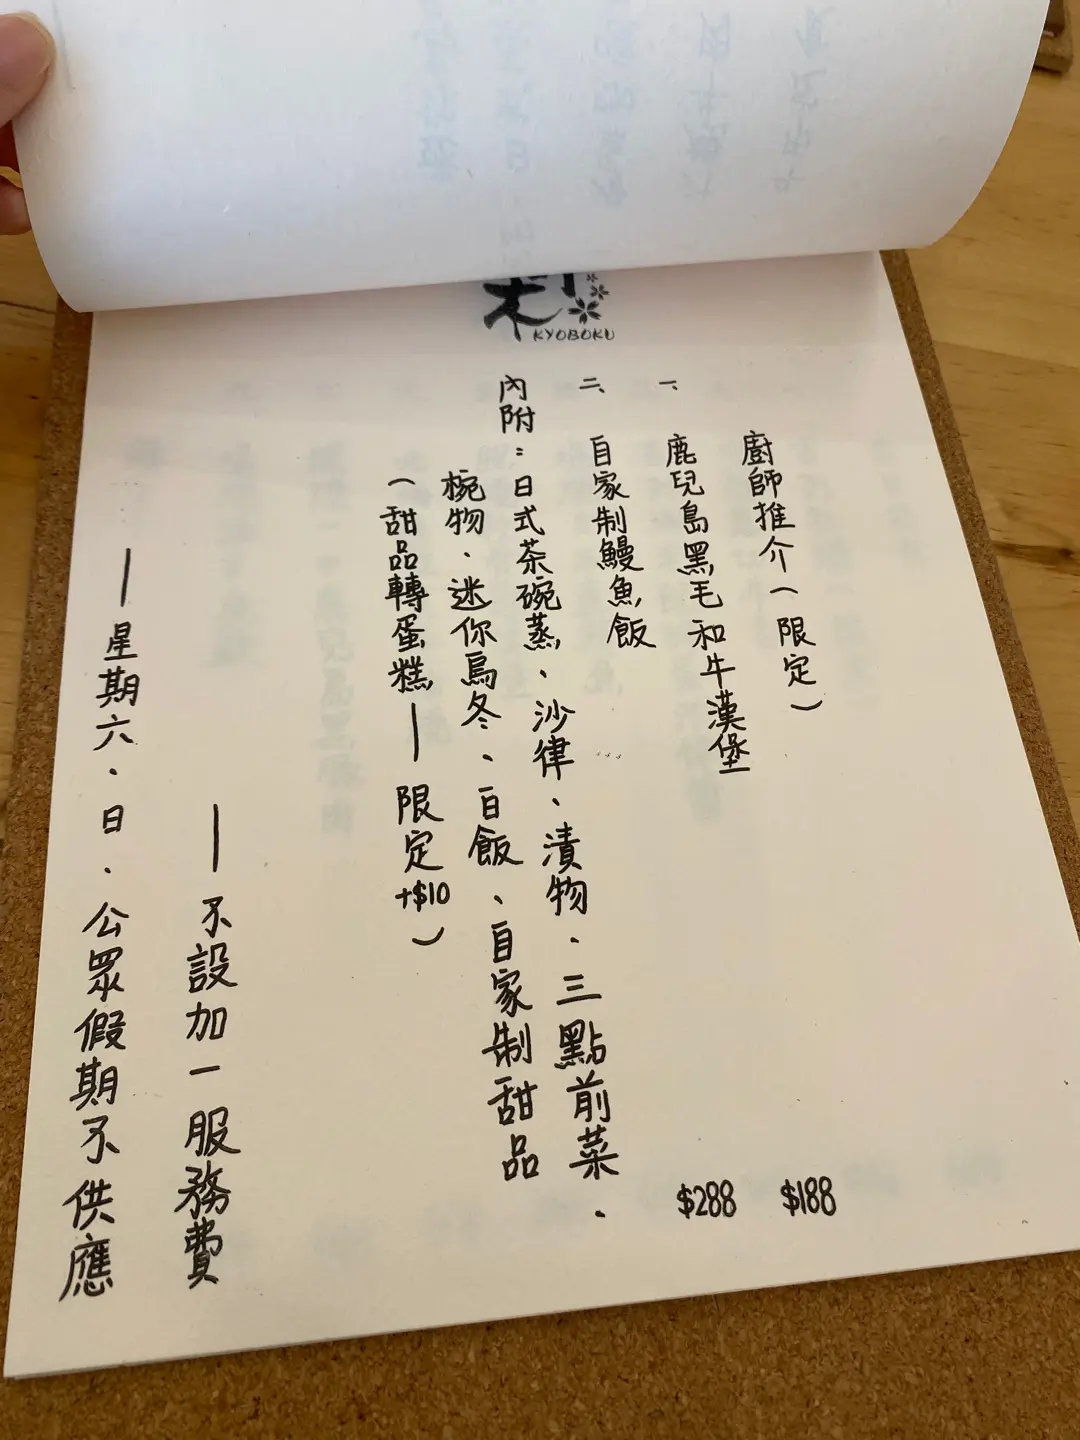 KYOBOKU
廚師推介(限定)
一、鹿兒島黑毛和牛漢堡 $188
二、自家制鰻魚飯 $288
內附：日式茶碗蒸、沙律、漬物、三點前菜、
椀物、迷你烏冬、白飯、自家制甜品
(甜品轉蛋糕—限定+$10)
—不設加一服務費
—星期六、日、公眾假期不供應